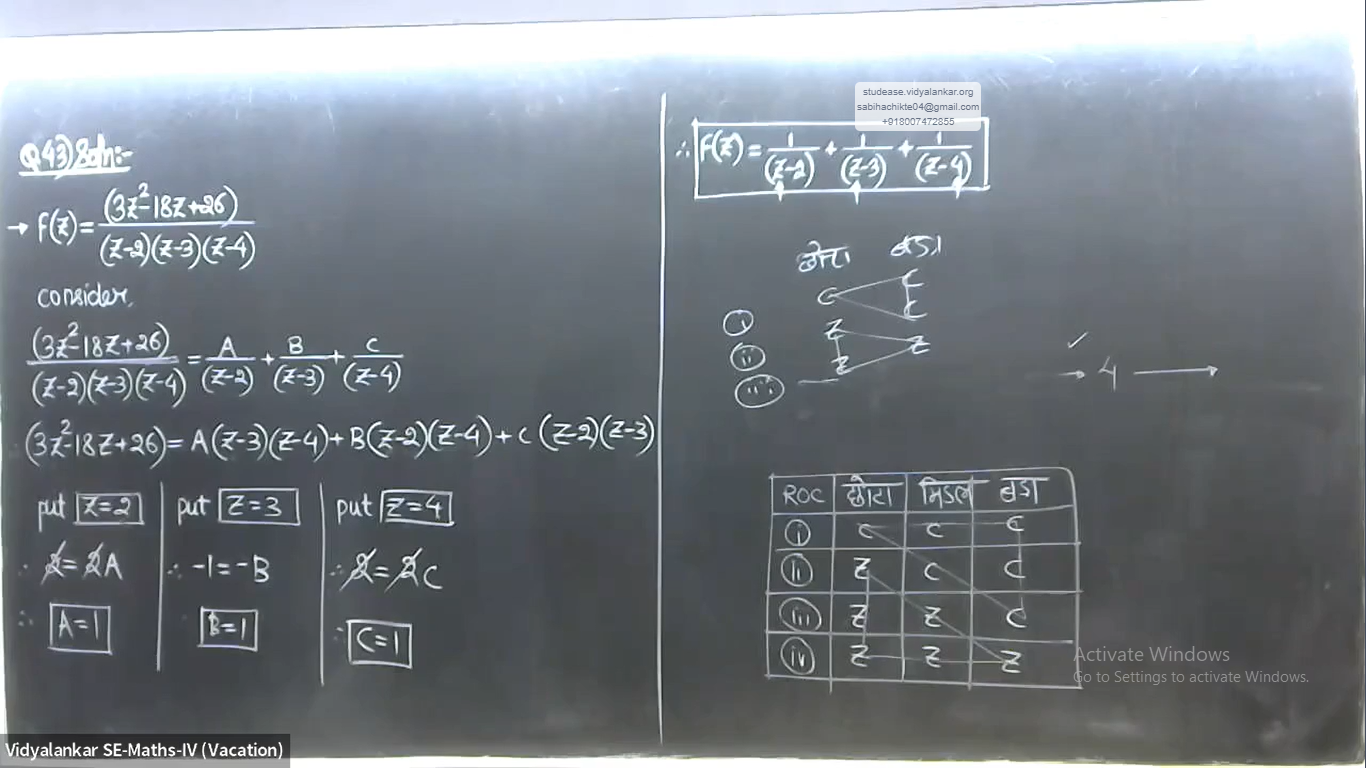 Q.43) Soln:-
→ F(z) = (3z²-18z+26) / (z-2)(z-3)(z-4)
consider,
(3z²-18z+26) / (z-2)(z-3)(z-4) = A/(z-2) + B/(z-3) + C/(z-4)
(3z²-18z+26) = A(z-3)(z-4) + B(z-2)(z-4) + C(z-2)(z-3)
put z=2
∴ 2 = 2A
∴ A=1
put z=3
∴ -1 = -B
B=1
put z=4
∴ 2 = 2C
∴ C=1
studease.vidyalankar.org
sabihachikte04@gmail.com
+918007472855
∴ F(z) = 1/(z-2) + 1/(z-3) + 1/(z-4)
छोटा बडा
C C
i C
z
ii z z
iii
→ 4 →
ROC छोटा मिडल बडा
i C C C
ii z C C
iii z z C
iv z z z
Activate Windows
Go to Settings to activate Windows.
Vidyalankar SE-Maths-IV (Vacation)